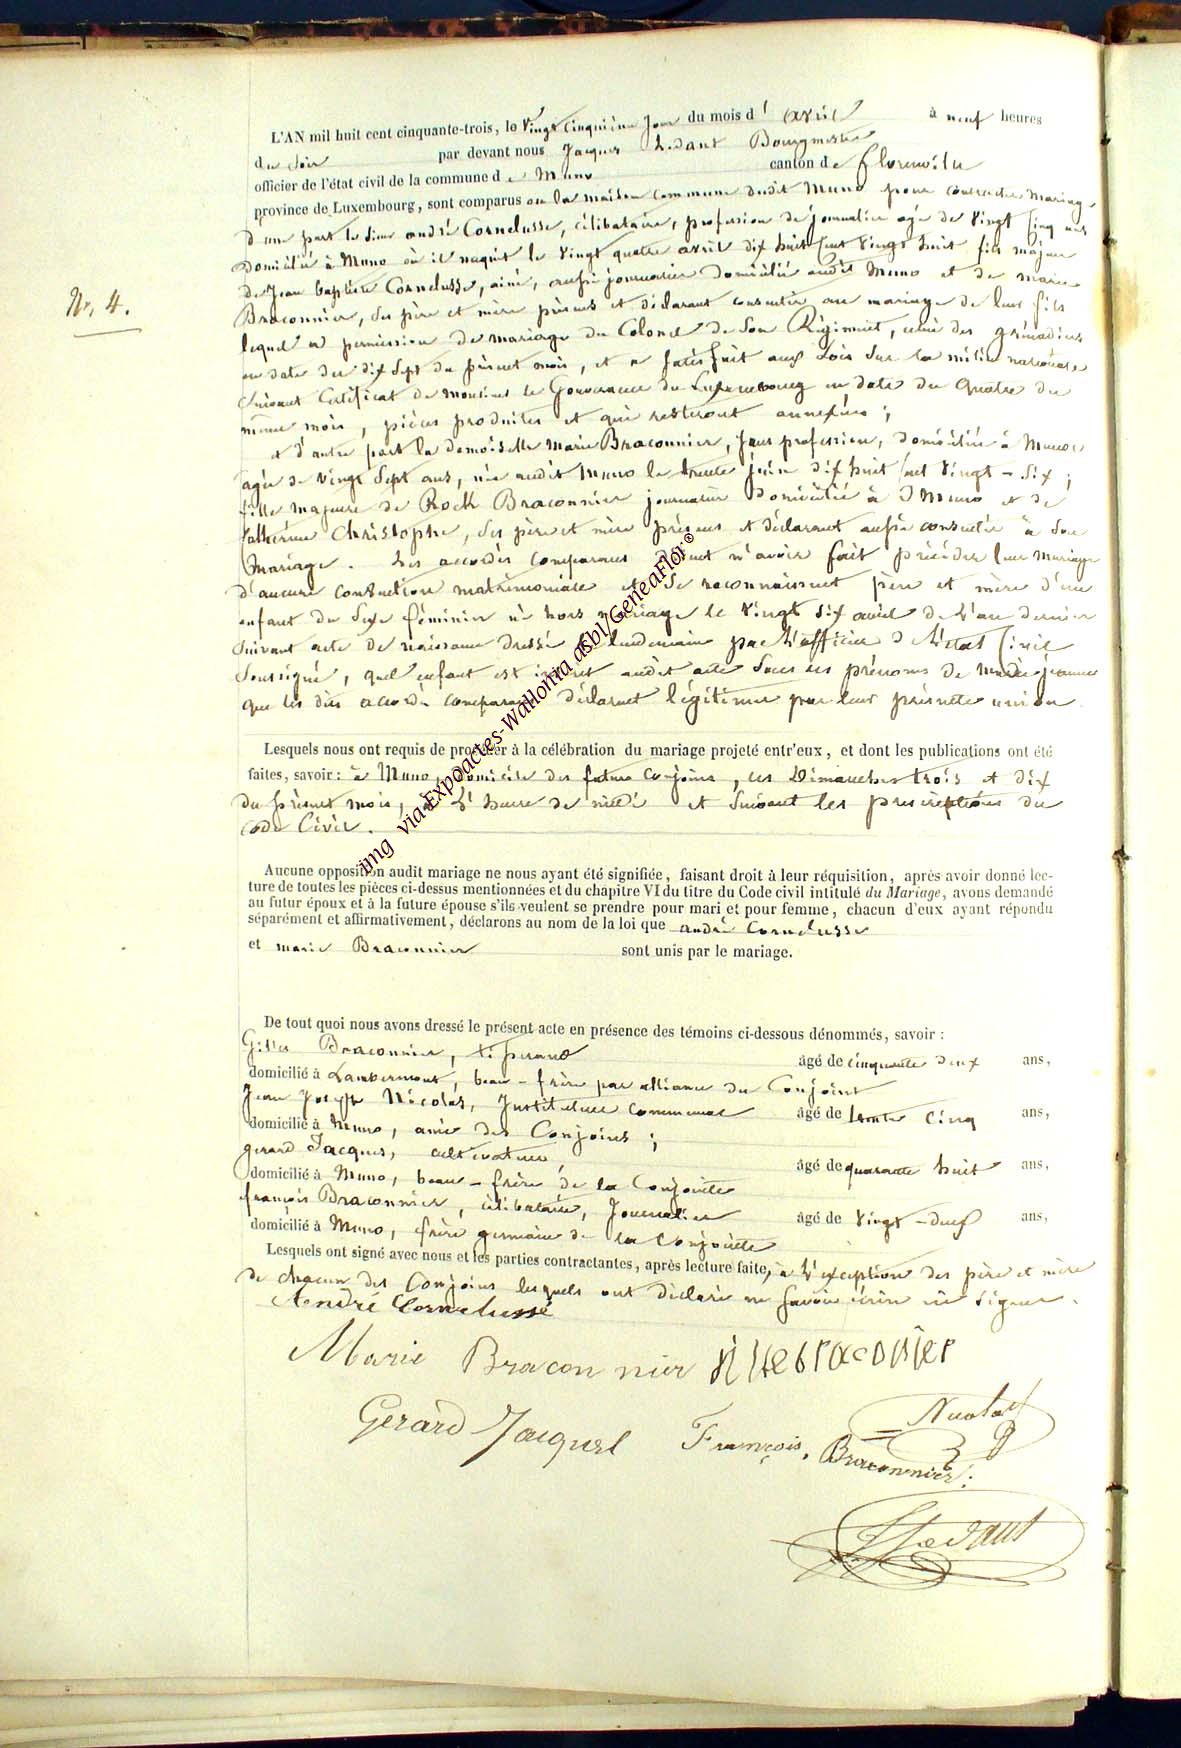 L'AN mil huit cent cinquante-trois, le Vingt Cinquième Jour du mois d' avril à neuf heures
du soir par devant nous Jacques Ledant Bourgmestre
officier de l'état civil de la commune de Muno canton de Florenville
province de Luxembourg, sont comparus en la maison commune dudit Muno pour contracter mariage
d'une part le Sieur andré Cornelusse, célibataire, profession de journalier agé de Vingt Cinq ans
Domicilié à Muno où il naquit le Vingt quatre avril dix huit Cent Vingt huit fils majeur
de Jean baptiste Cornelusse, ainé, aussi journalier Domicilié audit Muno et de marie
Braconnier, ses père et mère présens et déclarant consentir au mariage de leur fils
N°. 4.
lequel a permission de mariage du Colonel de Son Régiment, celui des grenadiers
en date du dix Sept du présent mois, et a satisfait aux Lois Sur la milice nationale,
Suivant Certificat de monsieur le Gouverneur du Luxembourg en date du Quatre du
même mois, pièces produites et qui resteront annexées ;
et d'autre part la demoiselle Marie Braconnier, Sans profession, domiciliée à Muno,
agée de Vingt Sept ans, née audit Muno le trente juin dix huit Cent Vingt - Six ;
fille majeure de Rock Braconnier journalier Domicilié à Muno et de
Catherine Christophe, Ses père et mère présens et déclarant aussi consentir à Son
mariage. Les accordés comparans disent n'avoir fait précéder leur mariage
d'aucune convention matrimoniale et Se reconnaissent père et mère d'un
enfant du Sexe féminin né hors mariage le Vingt Six avril de l'an dernier
Suivant acte de naissance dressé le lendemain par l'officier de l'état Civil
Soussigné, quel enfant est inscrit audit acte Sous les prénoms de marie jeanne
que les dits accordés comparans déclarent légitimer par leur présente union
Lesquels nous ont requis de procéder à la célébration du mariage projeté entr'eux, et dont les publications ont été
faites, savoir : à Muno, domicile des futurs Conjoins, les Dimanches trois et dix
du présent mois, à l'heure de midi et Suivant les prescriptions du
Code Civil.
Aucune opposition audit mariage ne nous ayant été signifiée, faisant droit à leur réquisition, après avoir donné lec-
ture de toutes les pièces ci-dessus mentionnées et du chapitre VI du titre du Code civil intitulé du Mariage, avons demandé
au futur époux et à la future épouse s'ils veulent se prendre pour mari et pour femme, chacun d'eux ayant répondu
séparément et affirmativement, déclarons au nom de la loi que andré Cornelusse
et marie Braconnier sont unis par le mariage.
De tout quoi nous avons dressé le présent acte en présence des témoins ci-dessous dénommés, savoir :
Gilles Braconnier, tisserand âgé de Cinquante deux ans,
domicilié à Lambermont, beau - frère par alliance du Conjoint
Jean Joseph Nicolas, Instituteur Communal âgé de trente Cinq ans,
domicilié à Muno, ami des Conjoins ;
gerard Jacques, cultivateur âgé de quarante huit ans,
domicilié à Muno, beau - frère de la Conjointe
françois Braconnier, célibataire, Journalier âgé de Vingt - deux ans,
domicilié à Muno, frère germain de la Conjointe
Lesquels ont signé avec nous et les parties contractantes, après lecture faite, à l'exception des père et mère
de chacun des Conjoins lesquels ont déclaré ne Savoir écrire ni Signer.
André Cornelusse
Marie Braconnier Gillebraconnier
Nicolas
Gerard Jacques François, Braconnier.
JLedant
img via Expoactes-Wallonia asbl/GeneaFlor©